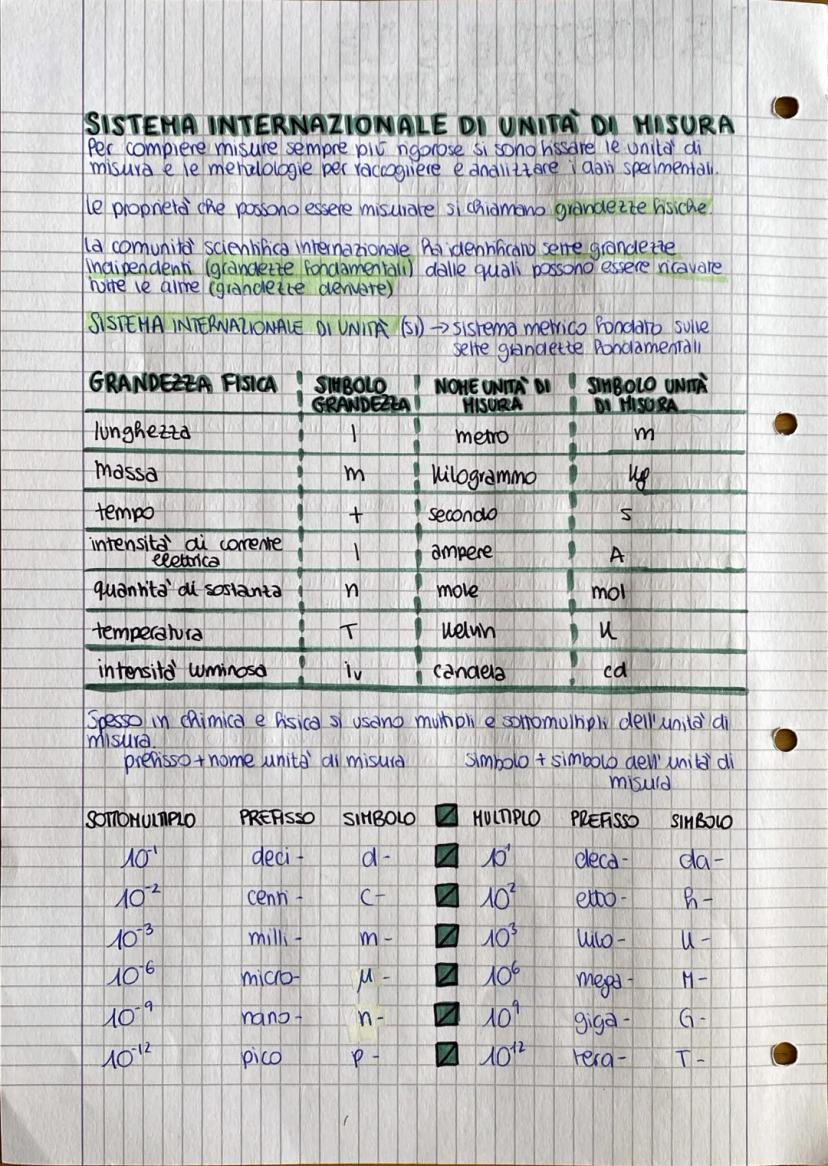 SISTEMA INTERNAZIONALE DI UNITÀ DI MISURA
Per compiere misure sempre più rigorose si sono fissate le unità di
misura e le metodologie per raccogliere e analizzare i dati sperimentali.
le proprietà che possono essere misurate si chiamano grandezze fisiche.
la comunità scientifica internazionale ha identificato sette grandezze
indipendenti (grandezze fondamentali) dalle quali possono essere ricavate
tutte le altre (grandezze derivate)
SISTEMA INTERNAZIONALE DI UNITÀ (SI) → sistema metrico fondato sulle
sette grandezze fondamentali
GRANDEZZA FISICA SIMBOLO GRANDEZZA NOME UNITÀ DI MISURA SIMBOLO UNITÀ DI MISURA
lunghezza l metro m
massa m kilogrammo kg
tempo t secondo s
intensità di corrente elettrica I ampere A
quantità di sostanza n mole mol
temperatura T kelvin K
intensità luminosa iv candela cd
Spesso in chimica e fisica si usano multipli e sottomultipli dell'unità di
misura.
prefisso + nome unità di misura simbolo + simbolo dell'unità di
misura
SOTTOMULTIPLO PREFISSO SIMBOLO MULTIPLO PREFISSO SIMBOLO
10⁻¹ deci- d- 10¹ deca- da-
10⁻² centi- c- 10² etto- h-
10⁻³ milli- m- 10³ kilo- k-
10⁻⁶ micro- μ- 10⁶ mega- M-
10⁻⁹ nano- n- 10⁹ giga- G-
10⁻¹² pico p- 10¹² tera- T-